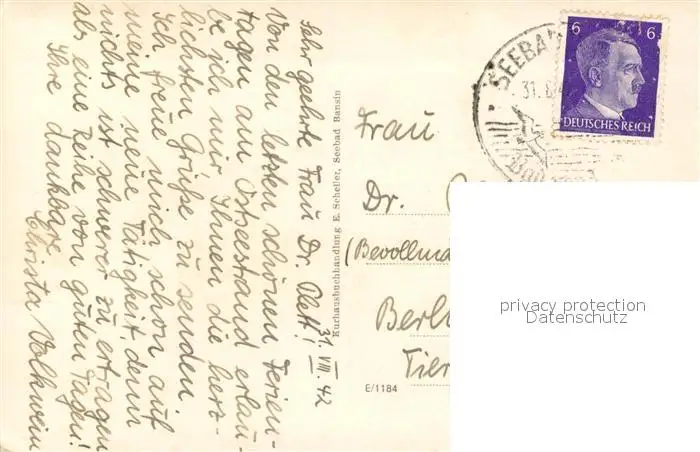 31. VIII. 42
Sehr geehrte Frau Dr.
Von den letzten schönen Ferien-
tagen am Ostseestrand erlau-
be ich mir Ihnen die herz-
lichsten Grüße zu senden
Ich freue mich schon auf
meine neue Tätigkeit, denn
nichts ist schwerer zu ertragen
als eine Reihe von guten Tagen!
Ihre dankbare
Christa Volkwein
Kurhausbuchhandlung E. Scheller, Seebad Bansin
E/1184
Frau
Dr.
(Bevollma
Berl
Tier
SEEBAD
31.8
6 6
DEUTSCHES REICH
privacy protection
Datenschutz